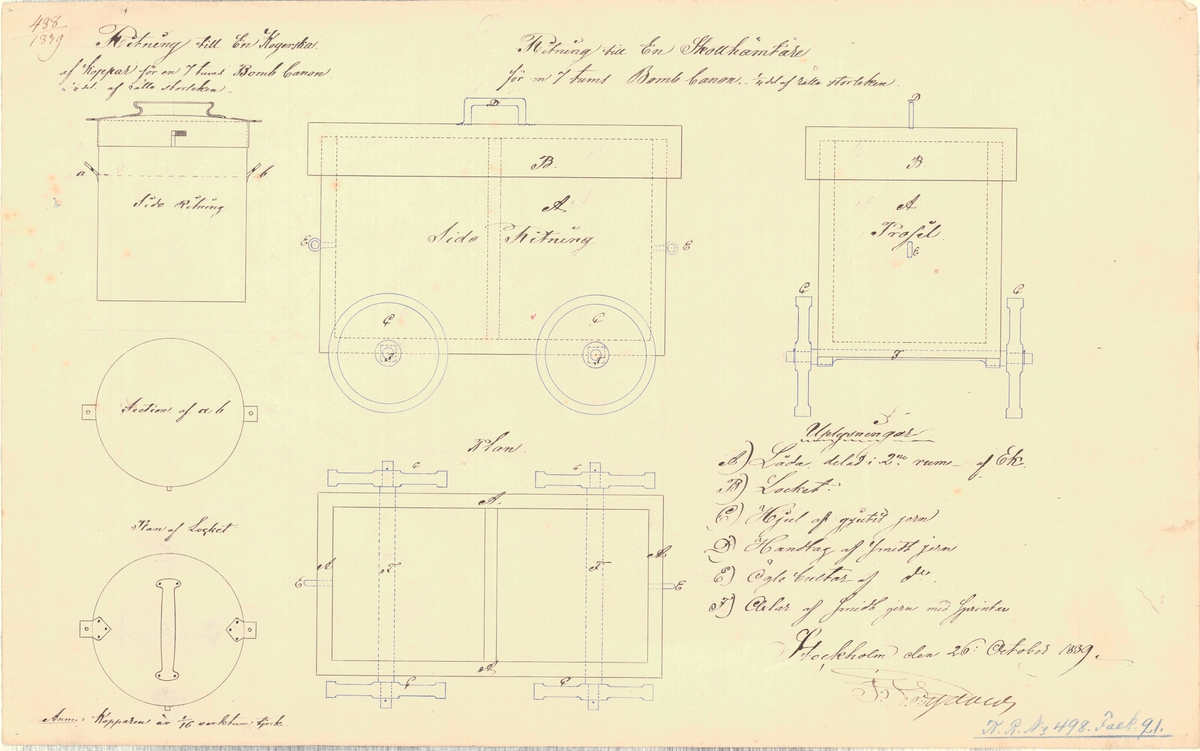 498
1839
Ritning till En Kogerska
af Koppar för en 7 tums Bomb Canon
¼ del. af rätta storleken.
a
b
Sido ritning
Section af a b
Plan af Locket
Anm: Kopparen är 1/16 verktum tjock.
Ritning till En Skotthämtare
för en 7 tums Bomb Canon. ¼ del af rätta storleken.
D
B.
A
Sido Ritning
E
E
C
C
F
F
D
B
A
Profil.
E
C
C
F
Plan.
C
C
A.
A
A
E
F
F
E
A
C
C
Uplysningar
A) Låda, delad i 2ne rum af Ek.
B) Locket.
C) Hjul af gjutit jern
D) Handtag af smidt jern
E) Ögle bultar af do.
F) Axlar af smidt jern med sprintar
Stockholm den 26 October 1839.
K. R. No 498. Fack 91.